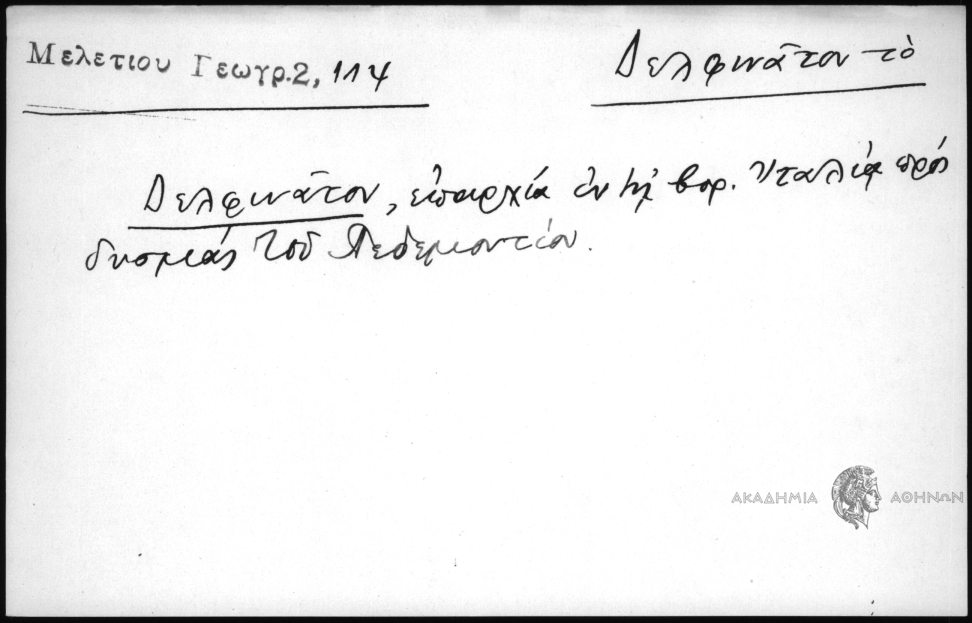 Μελετιου Γεωγρ.2, 114
Δελφινᾶτον τὸ
Δελφινᾶτον, ἐπαρχία ἐν τῇ βορ. Ἰταλίᾳ πρὸς
δυσμὰς τοῦ Πεδεμοντίου.
ΑΚΑΔΗΜΙΑ ΑΘΗΝΩΝ